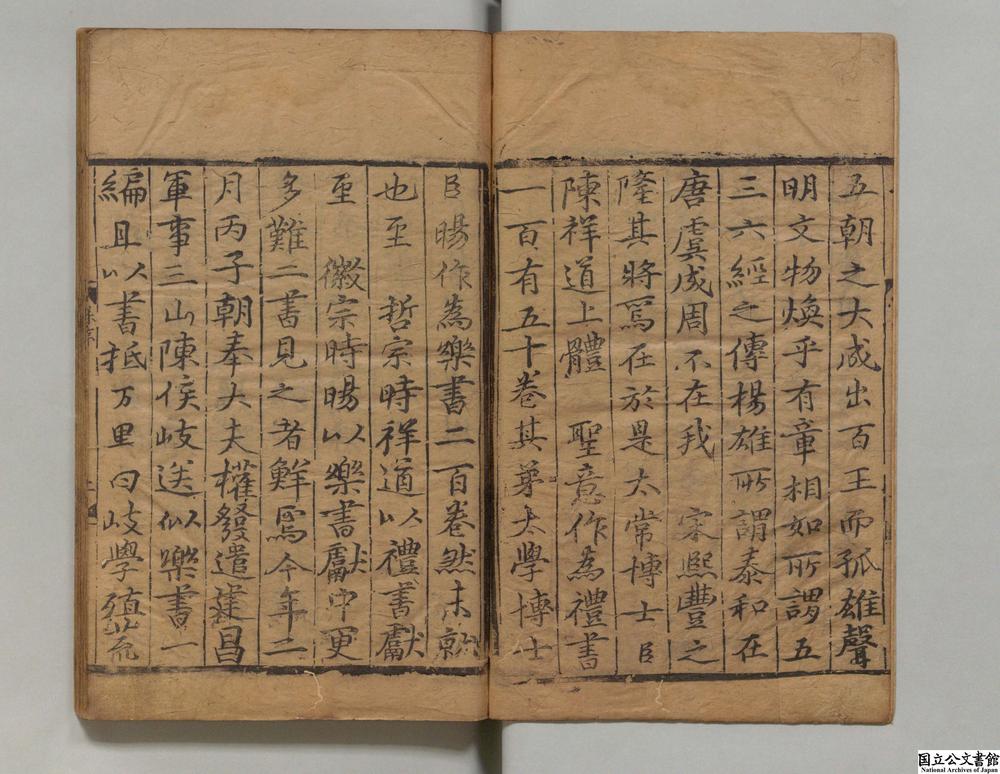 五朝之大成出百王而孤雄聲
明文物煥乎有章相如所謂五
三六經之傳楊雄所謂泰和在
唐虞成周不在我 宋熈豐之
隆其將焉在於是太常博士臣
陳祥道上體 聖意作為禮書
一百有五十卷其弟太學博士
臣暘作為樂書二百卷然未就
也至 哲宗時祥道以禮書獻
至 徽宗時暘以樂書獻中更
多難二書見之者鮮焉今年二
月丙子朝奉大夫權發遣建昌
軍事三山陳侯岐送似樂書一
編且以書抵万里曰岐學殖荒
国立公文書館
National Archives of Japan